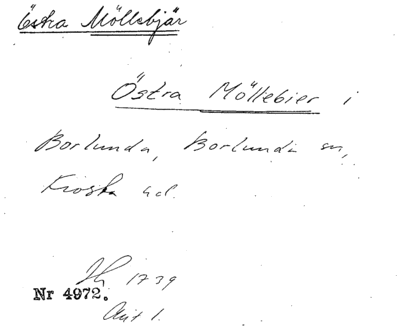 Östra Möllebjär
Östra Möllebier i
Borlunda, Borlunda sn,
Frosta hd.
1739
Nr 4972.
Akt 1.